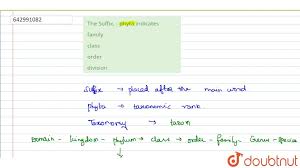 642991082
The Suffix, - phyta indicates
family
class
order
division
Suffix → placed after the main word
phyta → taxonomic rank
Taxonomy → taxon
Domain - kingdom - phylum → class → order - family - Genus - species
↓
doubtnut